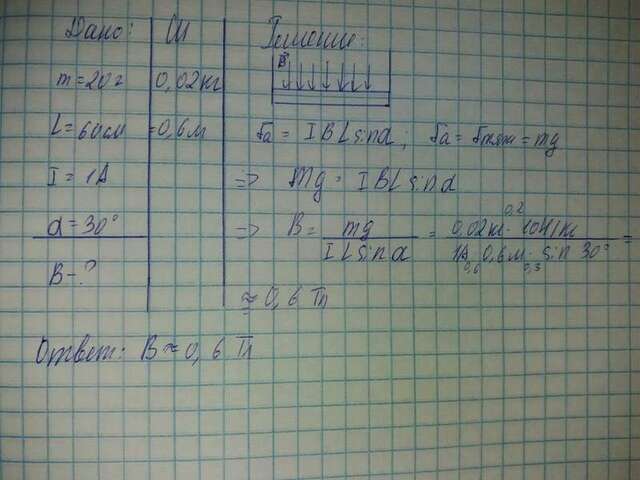 Дано:
m = 20 г
L = 60 см
I = 1А
α = 30°
B - ?
СИ
0,02 кг
= 0,6 м
Решение:
B
Fа = IBLsinα; Fа = Fтяж = mg
=> mg = IBLsinα
=> B = mg / ILsinα = 0,02 кг · 10 Н/кг / 1А · 0,6 м · sin 30° =
0,2
0,6 0,3
≈ 0,6 Тл
Ответ: B ≈ 0,6 Тл